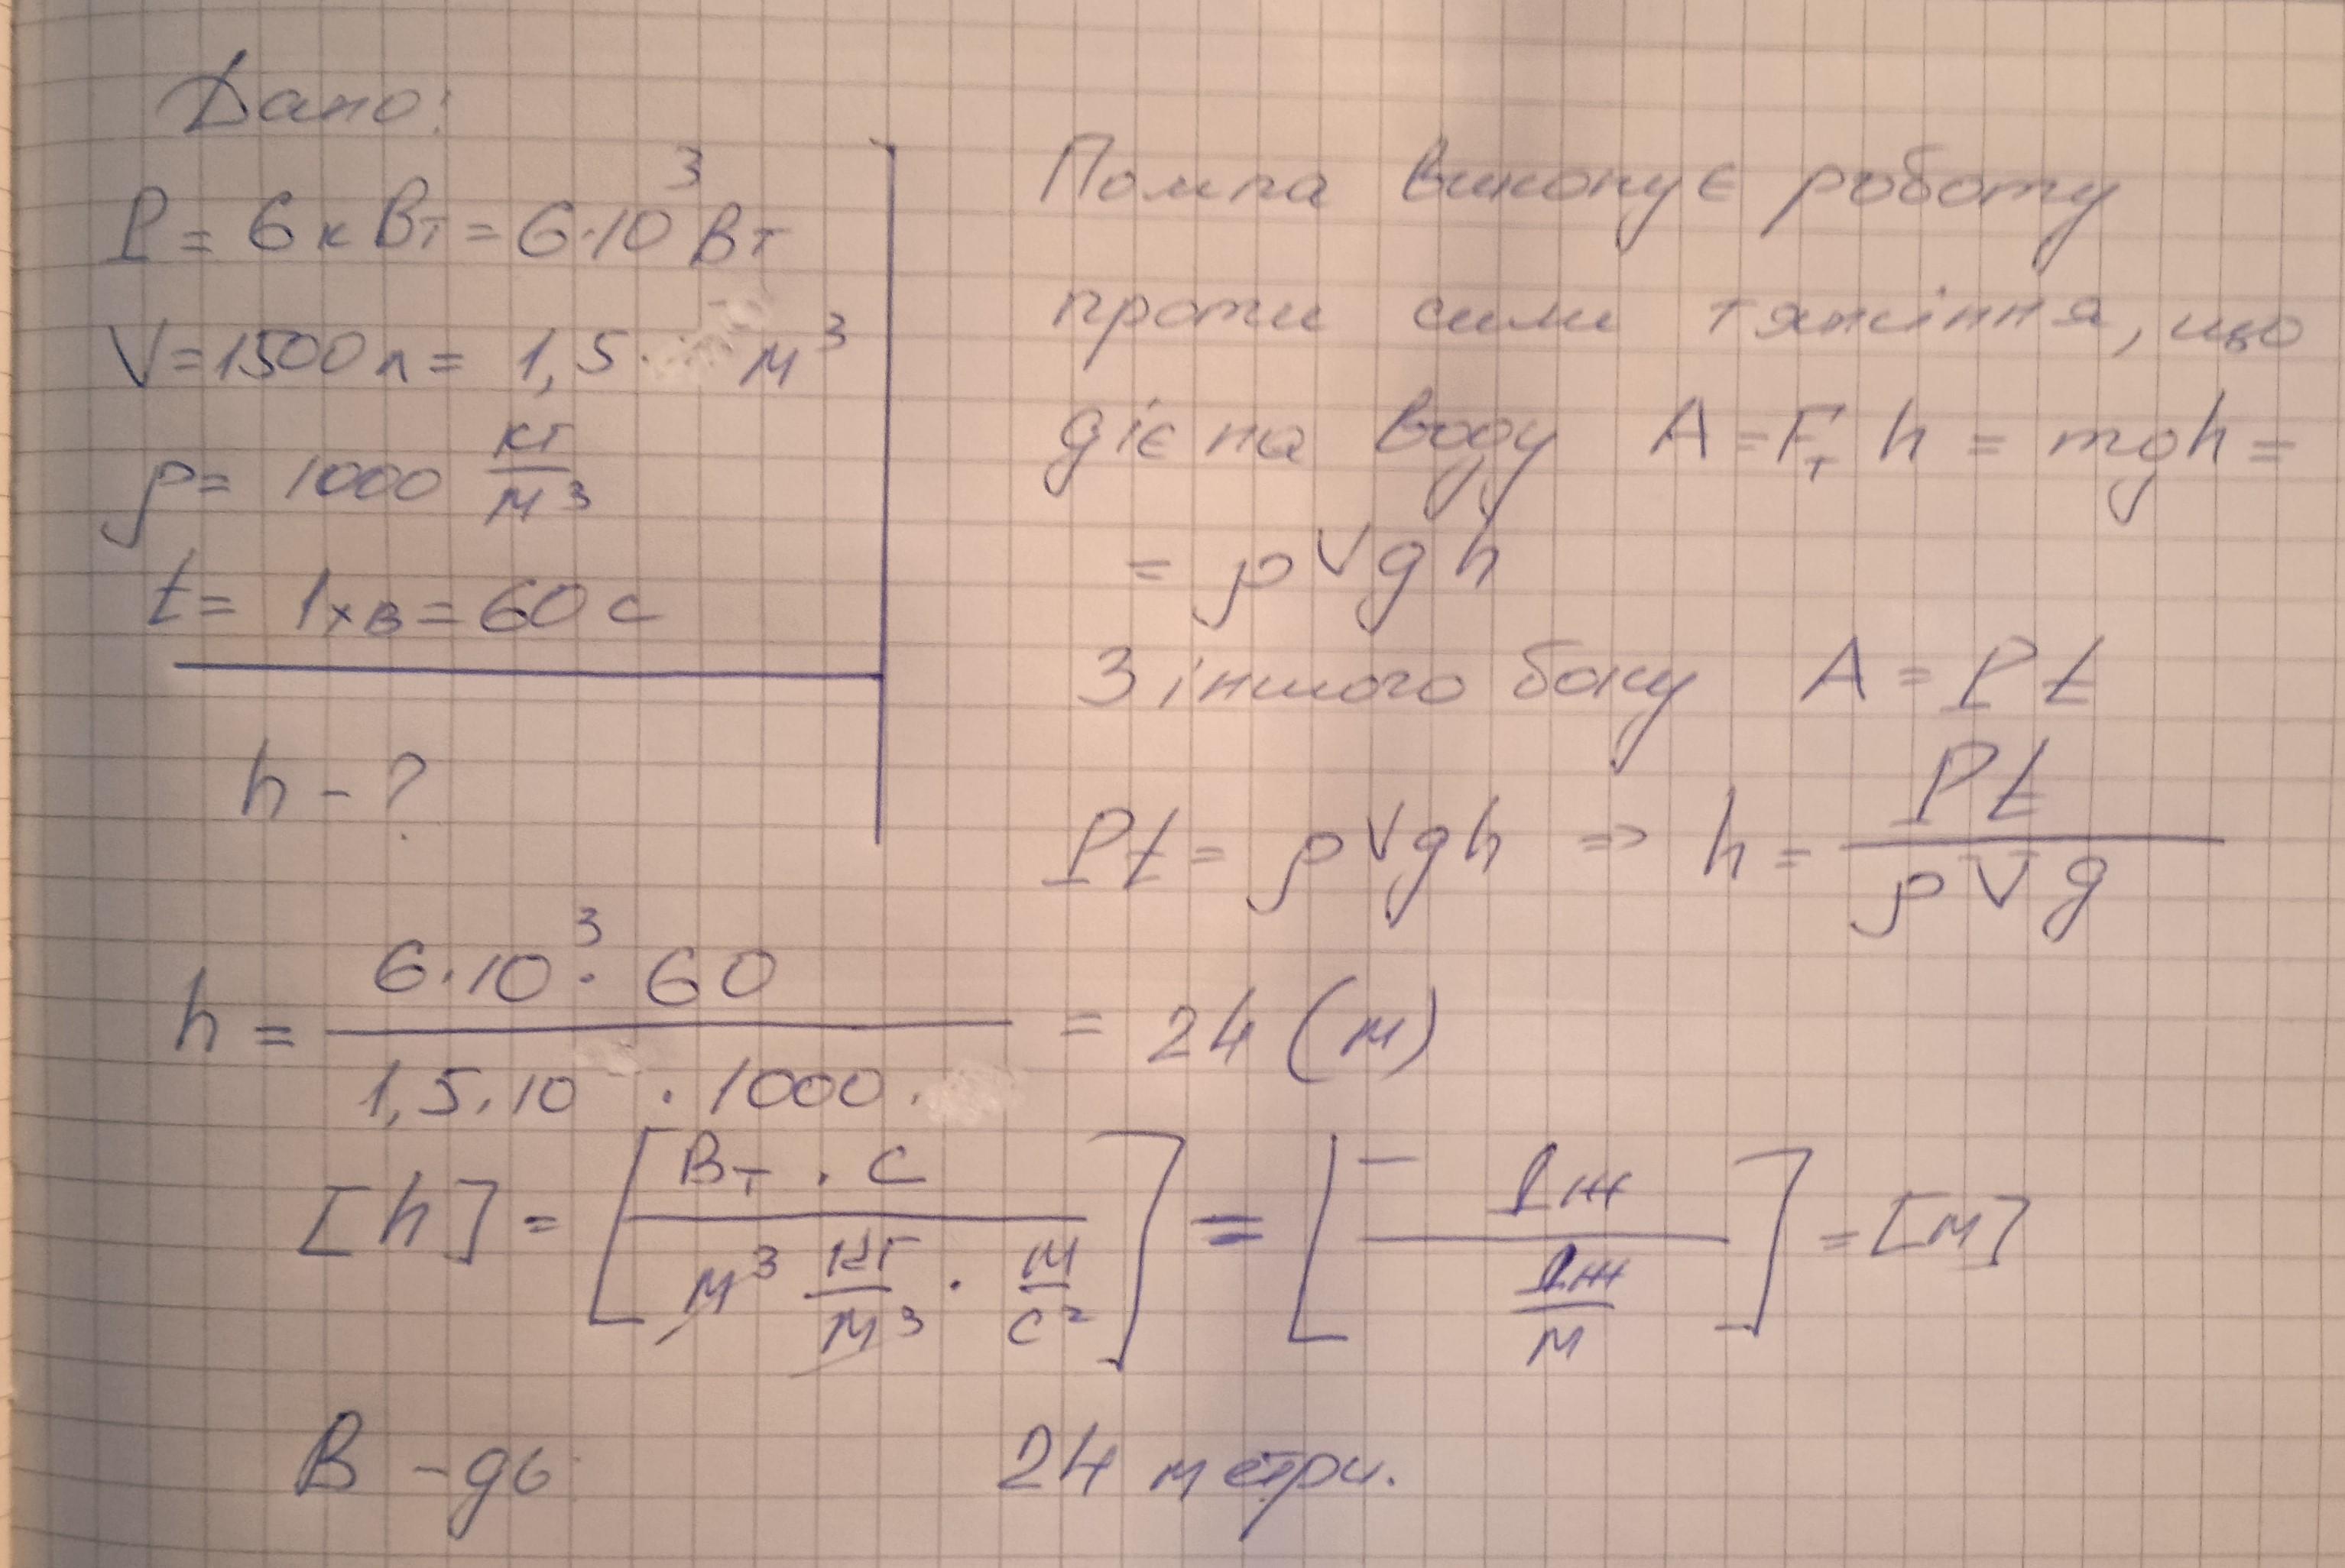 Дано:
P = 6 кВт = 6·10³ Вт
V = 1500 л = 1,5· м³
ρ = 1000 кг/м³
t = 1 хв = 60 с
h - ?
Помпа виконує роботу
проти сили тяжіння, що
діє на воду A = Fт h = mgh =
= ρVgh
З іншого боку A = Pt
Pt = ρVgh => h = Pt / ρVg
h = 6·10³·60 / 1,5·10 · 1000 · = 24 (м)
[h] = [Вт · с / м³ кг/м³ · м/с²] = [Дж / Дж/м] = [м]
В-дь: 24 метри.